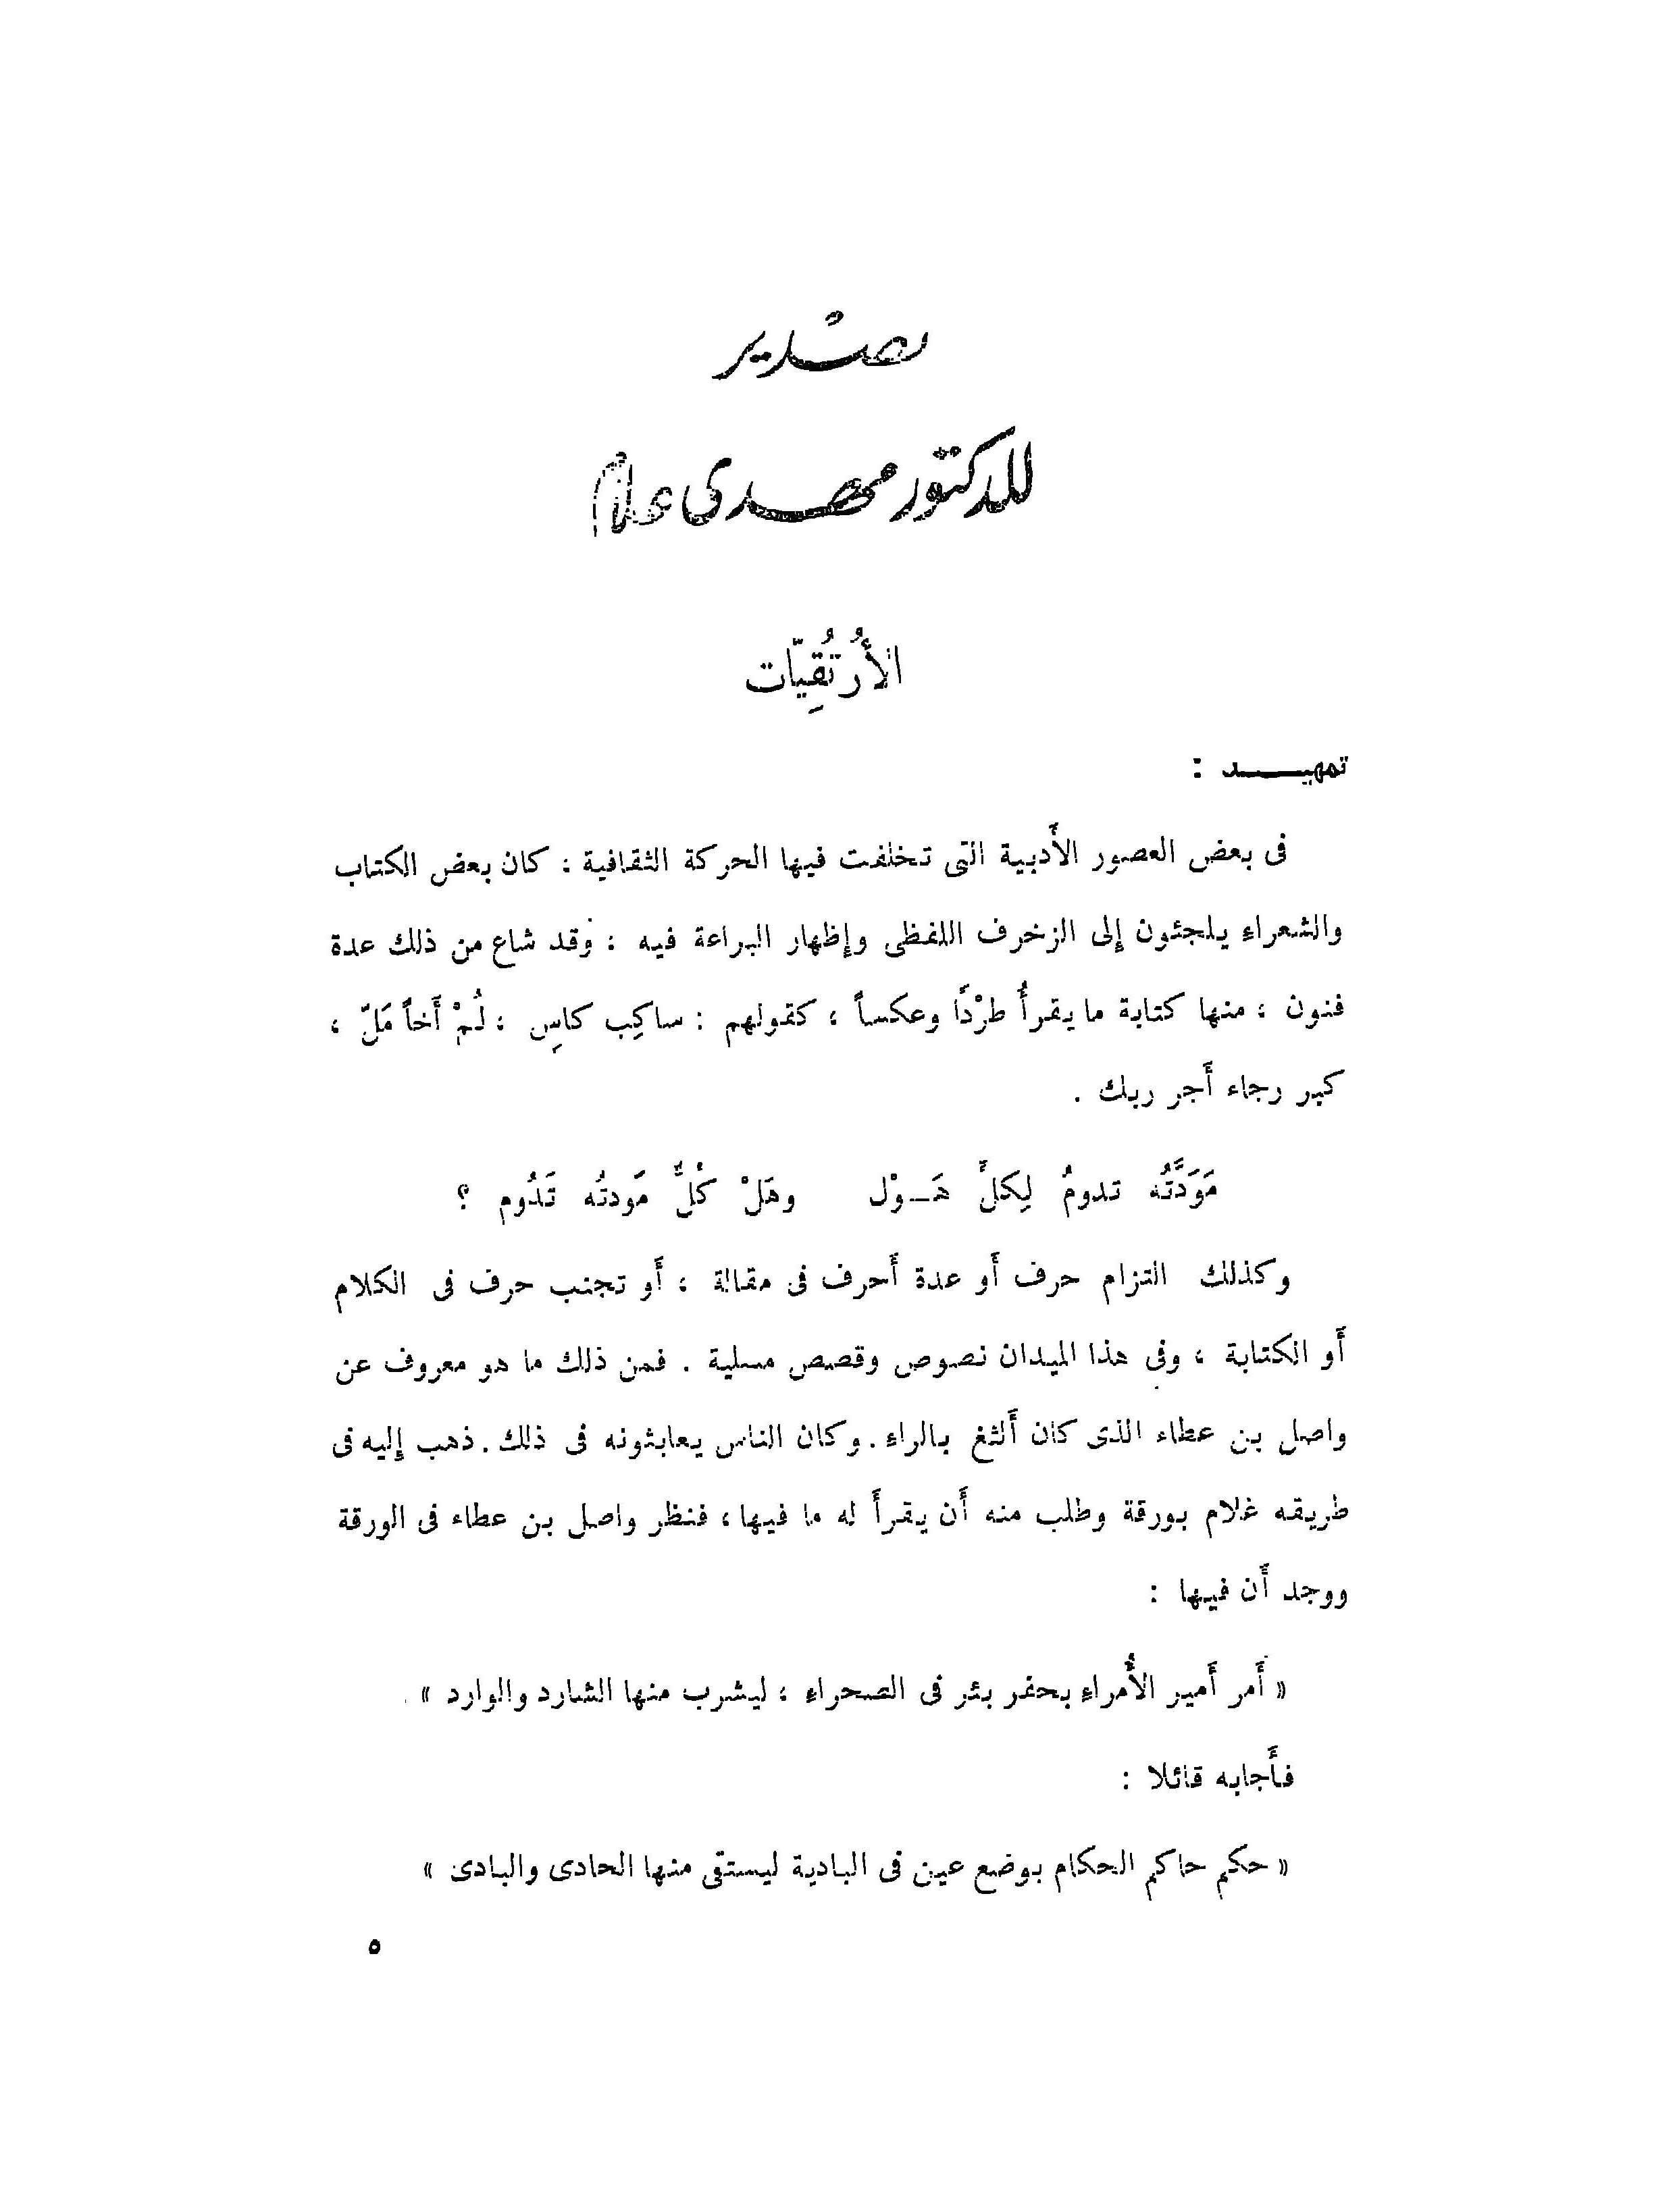 تصدير
للدكتور محمد مهدى علام
الأُرتُقِيّات
تمهيــــد :
فى بعض العصور الأَدبية التى تخلفت فيها الحركة الثقافية ؛ كان بعض الكتاب
والشعراءِ يلجئون إلى الزخرف اللفظى وإظهار البراعة فيه ؛ وقد شاع من ذلك عدة
فنون ، منها كتابة ما يقرأُ طرْدًا وعكساً ، كقولهم : ساكِب كاسِ ، لُمْ أَخاً مَلّ ،
كبر رجاء أَجر ربك .
مَوَدَّتُه تدومُ لِكلِّ هَـوْل وهَلْ كُلٌّ مَودتُه تَدُوم ؟
وكذلك التزام حرف أَو عدة أَحرف فى مقالة ، أَو تجنب حرف فى الكلام
أَو الكتابة ، وفى هذا الميدان نصوص وقصص مسلية . فمن ذلك ما هو معروف عن
واصل بن عطاء الذى كان أَلثغ بالراءِ . وكان الناس يعابثونه فى ذلك . ذهب إليه فى
طريقه غلام بورقة وطلب منه أَن يقرأَ له ما فيها ، فنظر واصل بن عطاء فى الورقة
ووجد أَن فيها :
« أَمر أَمير الأُمراءِ بحفر بئر فى الصحراءِ ؛ ليشرب منها الشارد والوارد » .
فأَجابه قائلا :
« حكم حاكم الحكام بوضع عين فى البادية ليستقى منها الحادى والبادى »
٥